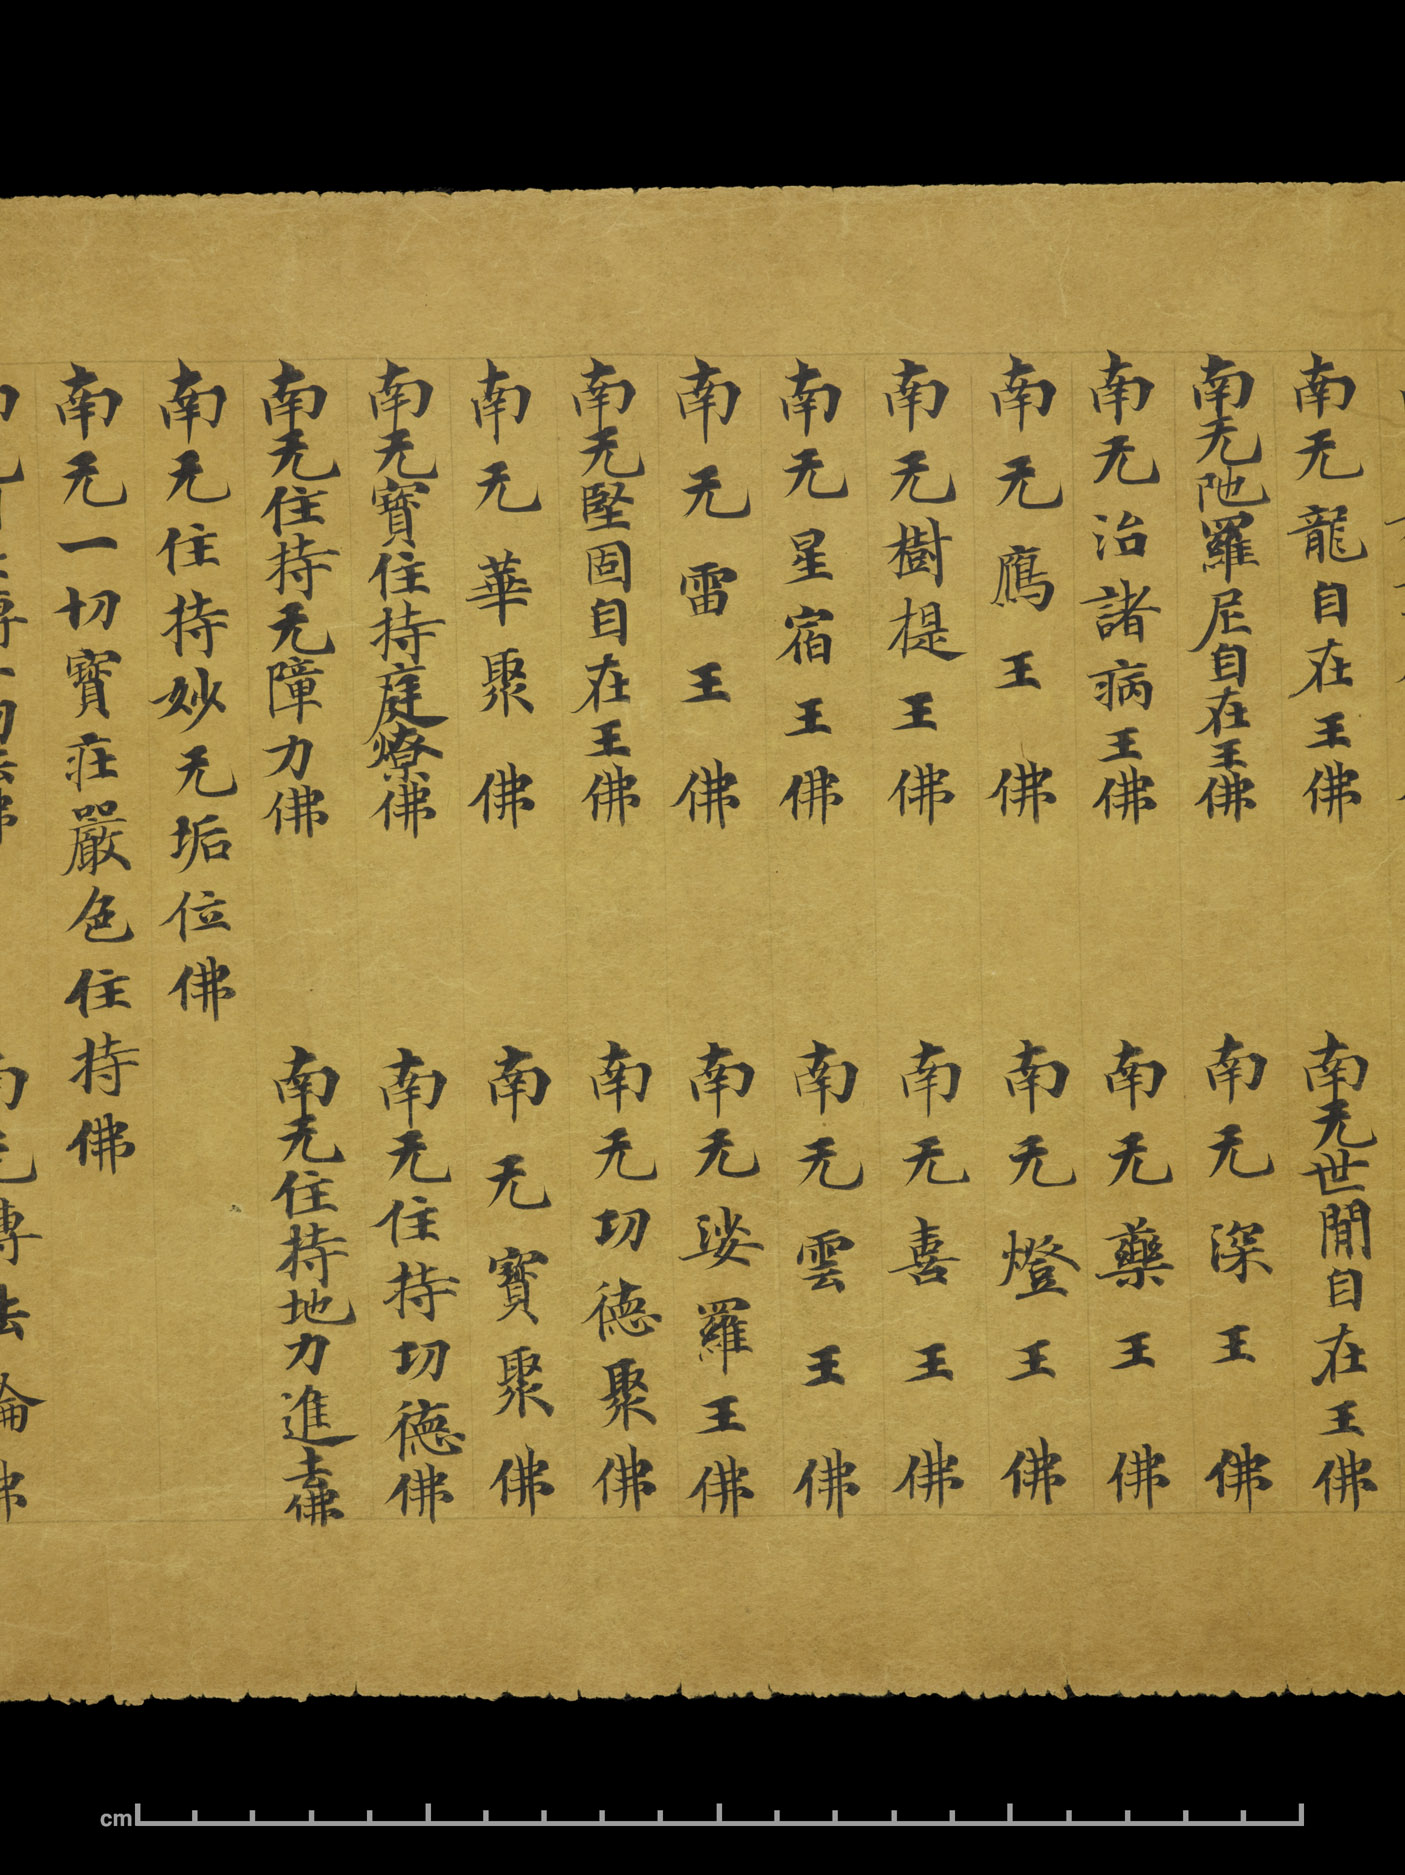 南无龍自在王佛　南无世間自在王佛
南无陁羅尼自在王佛　南无深王佛
南无治諸病王佛　南无藥王佛
南无鷹王佛　南无燈王佛
南无樹提王佛　南无喜王佛
南无星宿王佛　南无雲王佛
南无雷王佛　南无娑羅王佛
南无堅固自在王佛　南无功德聚佛
南无華聚佛　南无寶聚佛
南无寶住持庭燎佛　南无住持功德佛
南无住持无障力佛　南无住持地力進去佛
南无住持妙无垢位佛
南无一切寶莊嚴色住持佛
南无轉法輪佛
cm